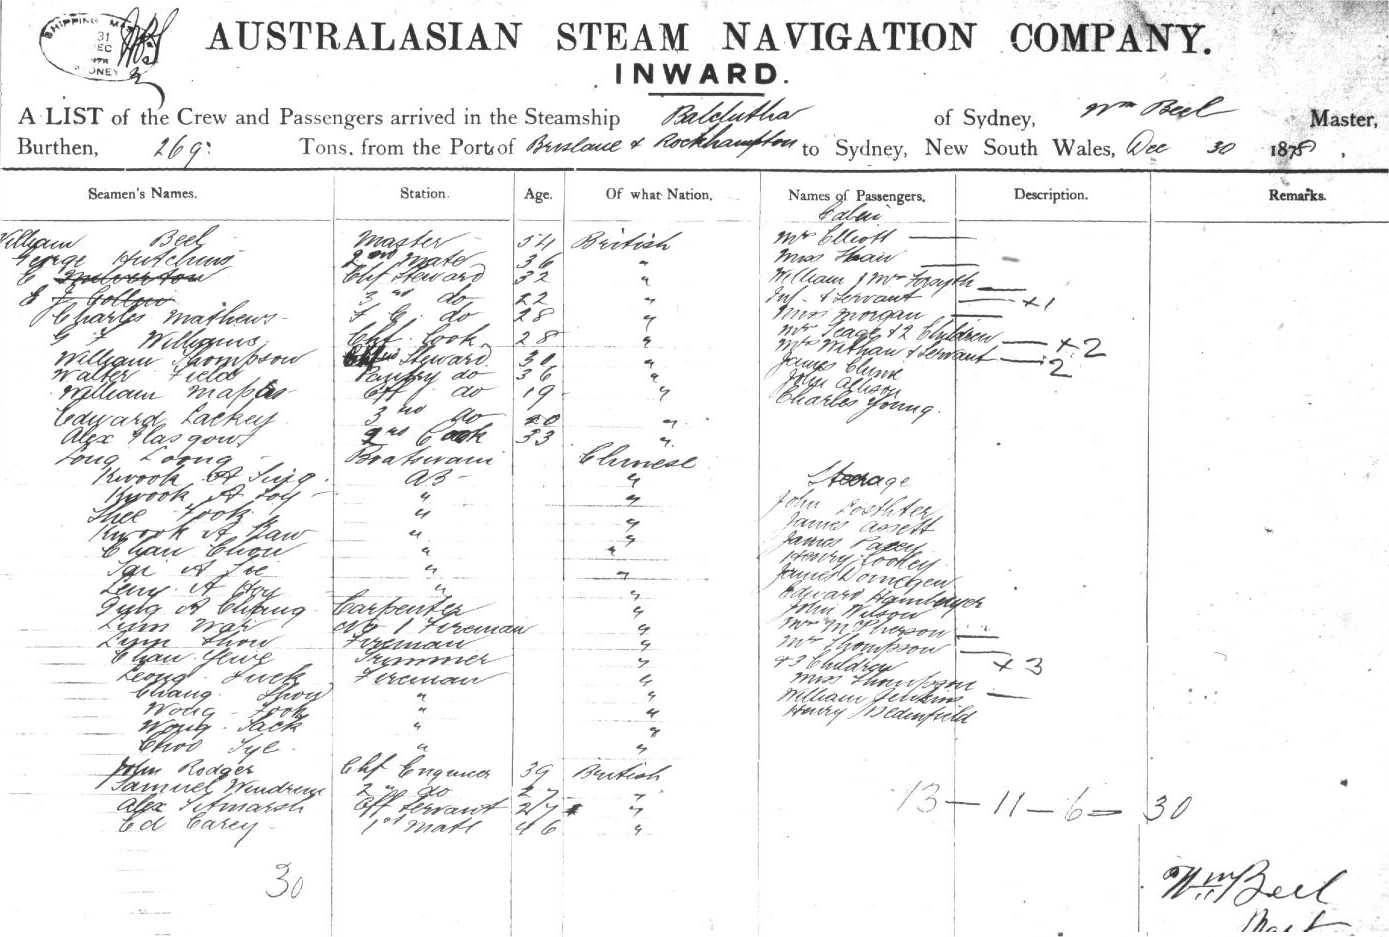 SHIPPING MA
31
DEC
SYDNEY
AUSTRALASIAN STEAM NAVIGATION COMPANY.
INWARD.
A LIST of the Crew and Passengers arrived in the Steamship Balclutha of Sydney, Wm Beel Master,
Burthen, 269: Tons, from the Port of Brisbane & Rockhampton to Sydney, New South Wales, Dec 30 1878,
Seamen's Names. Station. Age. Of what Nation. Names of Passengers. Description. Remarks.
Cabin
William Beel Master 54 British
George Hutchins 2nd Mate 36 "
E Milverton Chf Steward 32 "
E J Gollow 3rd do 22 "
Charles Mathews F C do 28 "
G F Williams Chf Cook 28 "
William Thompson Steward 30 "
Walter Field Pantry do 36 "
William do 19 "
Edward Lackey 3rd do 20 "
Alex Glasgow 2nd Cook 33 "
Long Loong Boatswain Chinese
Kwook A Sing AB "
Kwook A Foy " "
Shee Fook " "
Kwook A Baw " "
Chan Chow " "
" "
A Hoy " "
A Cheong Carpenter "
Lum War No 1 Fireman "
Lum Show Fireman "
Chan Trimmer "
Leong Luck Fireman "
Chang " "
Wong Fook " "
Wong Sack " "
Choo Sye " "
John Rodger Chf Engineer 39 British
Samuel 2nd do 27 "
Alex Servant 27 "
Ed Carey 1st Mate 46 "
30
Mr Elliott
Miss
William & Mrs Forsyth
Inf. & Servant +1
Miss Morgan
Mrs Leage & 2 Children +2
Mrs Withan & Servant 2
James
John Allison
Charles Young.
Steerage
John
James
James
Henry Cooley
James
Edward Hamburger
John Wilson
Mrs McPherson
Mrs Thompson
& 3 Children +3
Miss Thompson
William Jenkins
Henry Bedenfield
13 — 11 — 6 = 30
Wm Beel
Mast